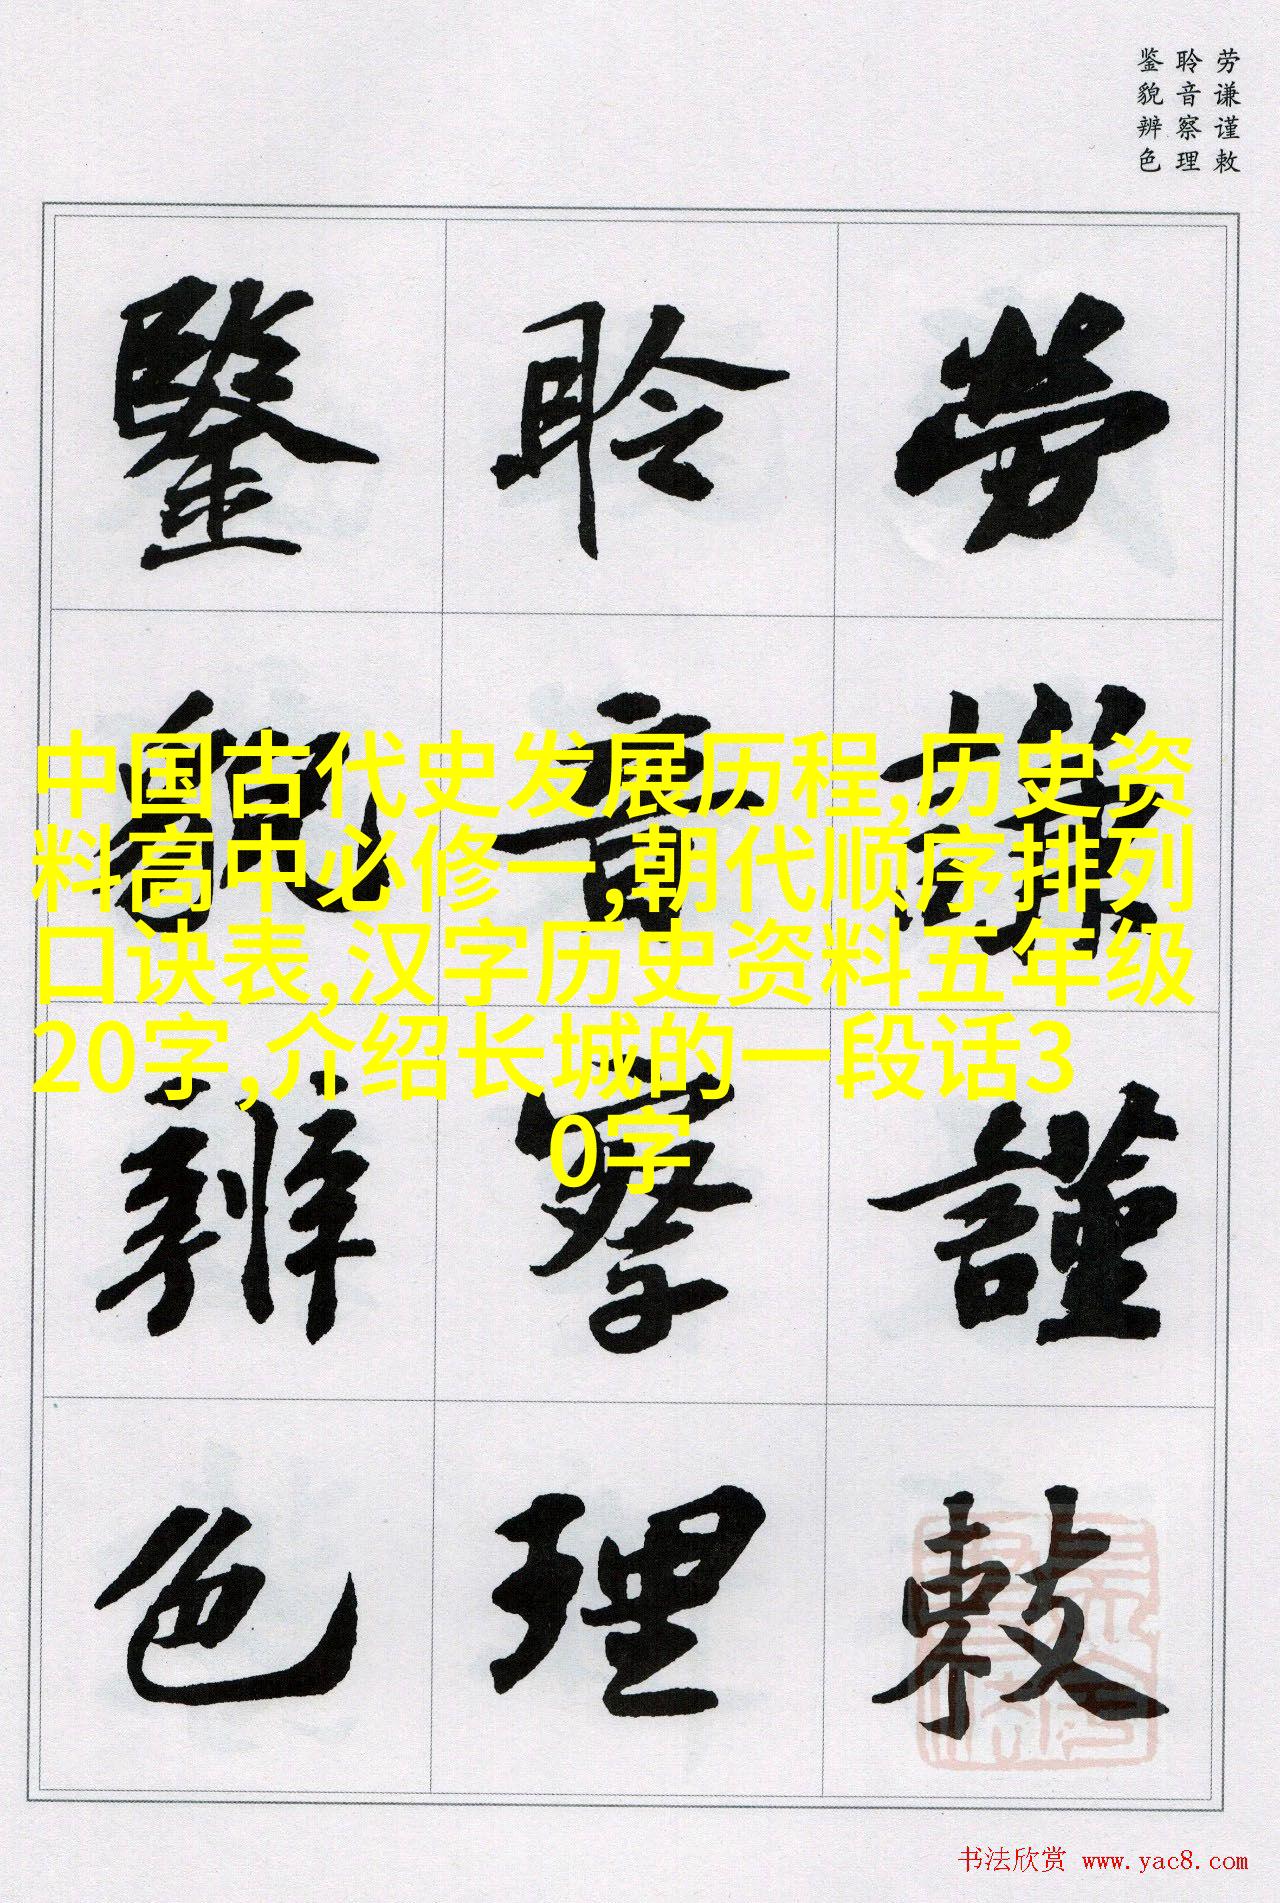 劳谦谨敕
聆音察理
鉴貌辨色
勞謙謹敕
聆音察理
鑒貌辨色
中国古代史发展历程,历史资
料高中必修一,朝代顺序排列
口诀表,汉字历史资料五年级
20字,介绍长城的一段话3
0字
书法欣赏 www.yac8.com